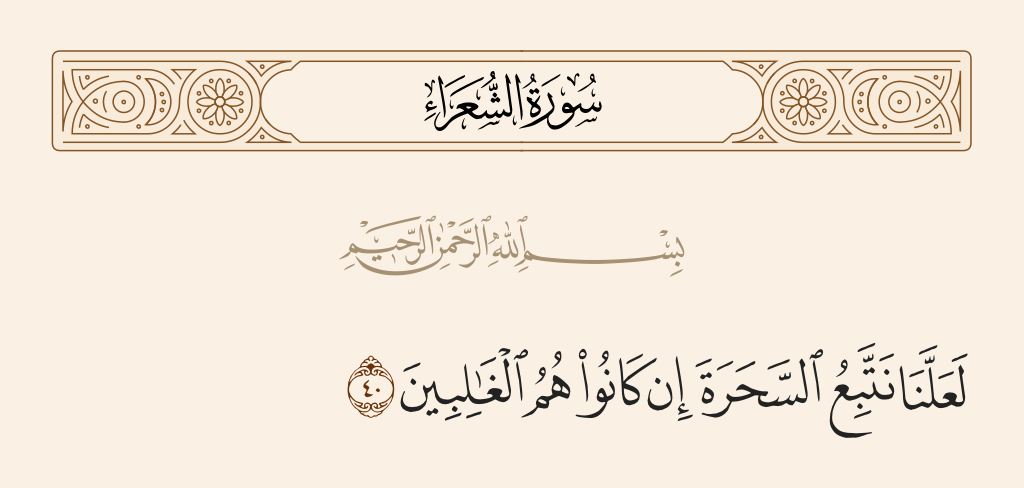 سُورَةُ الشُّعَرَاءِ
بِسْمِ ٱللَّهِ ٱلرَّحْمَٰنِ ٱلرَّحِيمِ
لَعَلَّنَا نَتَّبِعُ ٱلسَّحَرَةَ إِن كَانُوا۟ هُمُ ٱلْغَٰلِبِينَ ٤٠